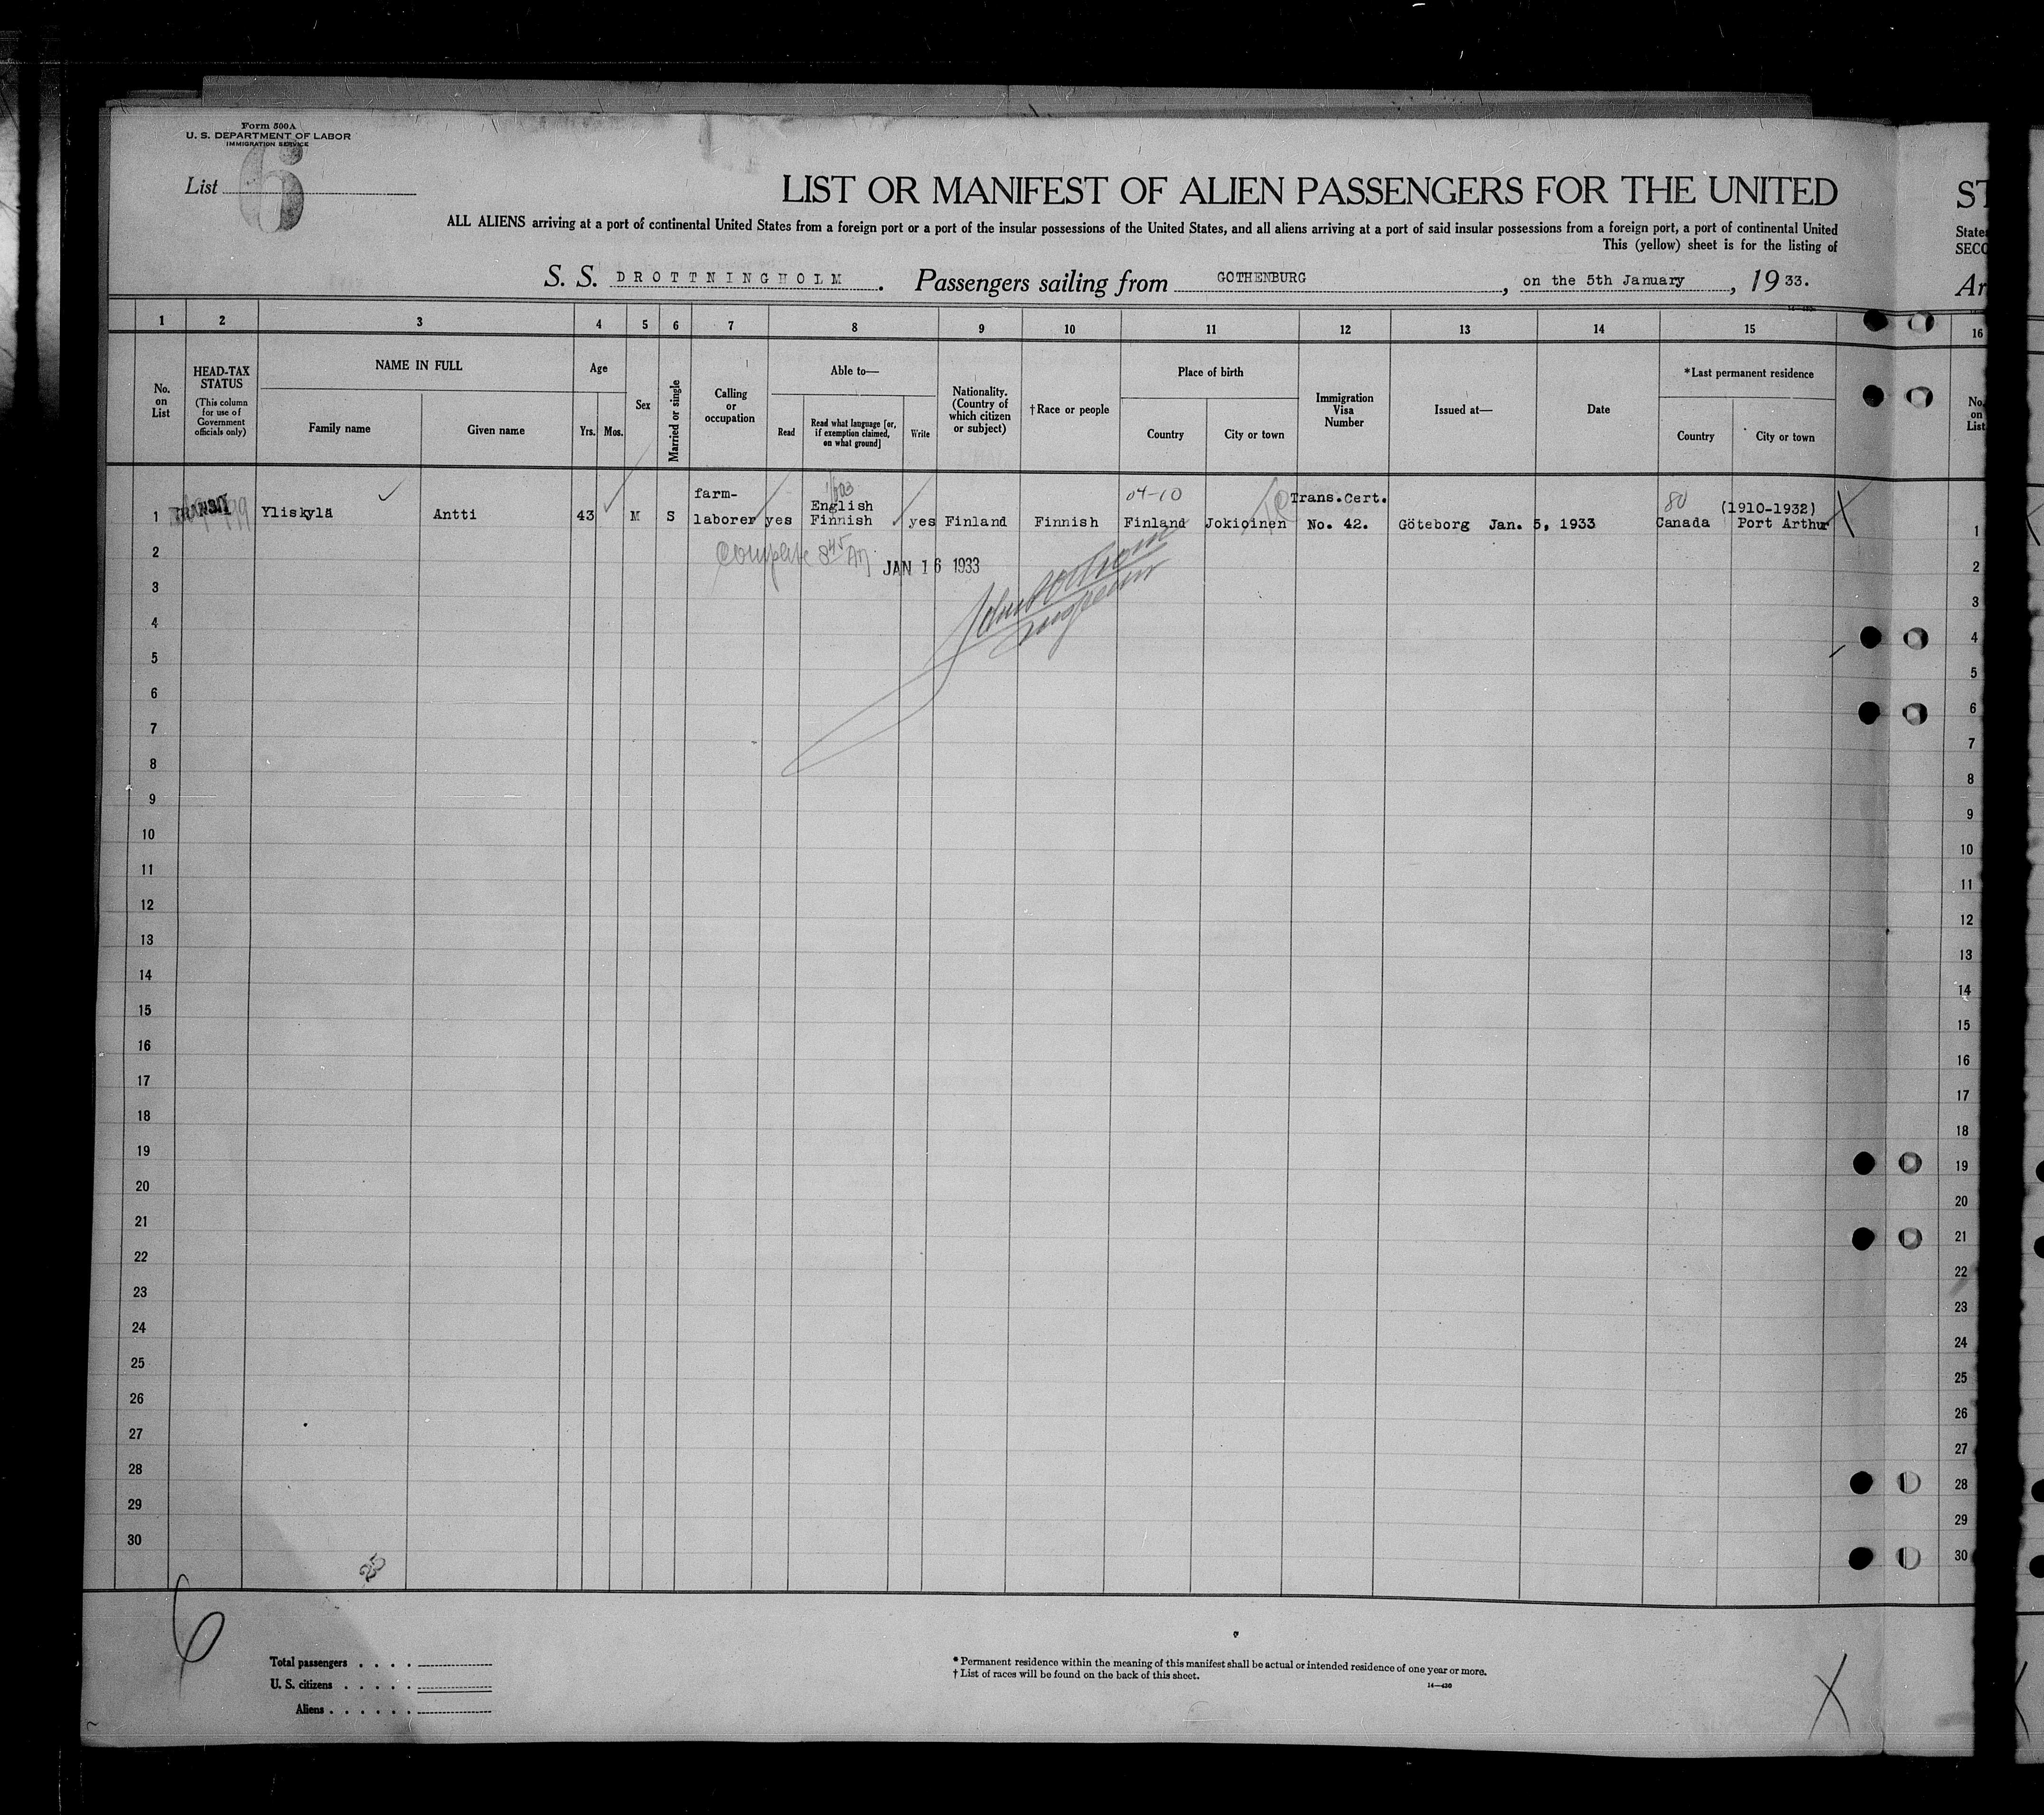 Form 500A
U. S. DEPARTMENT OF LABOR
IMMIGRATION SERVICE
List 6
LIST OR MANIFEST OF ALIEN PASSENGERS FOR THE UNITED
ST
ALL ALIENS arriving at a port of continental United States from a foreign port or a port of the insular possessions of the United States, and all aliens arriving at a port of said insular possessions from a foreign port, a port of continental United
This (yellow) sheet is for the listing of
States
SECO
S. S. DROTTNINGHOLM. Passengers sailing from GOTHENBURG, on the 5th January, 1933.
Ar
1 2 3 4 5 6 7 8 9 10 11 12 13 14 15 16
No. on List
HEAD-TAX STATUS
(This column for use of Government officials only)
NAME IN FULL
Family name
Given name
Age
Yrs. Mos.
Sex
Married or single
Calling or occupation
Able to—
Read
Read what language [or, if exemption claimed, on what ground]
Write
Nationality. (Country of which citizen or subject)
†Race or people
Place of birth
Country
City or town
Immigration Visa Number
Issued at—
Date
*Last permanent residence
Country
City or town
No. on List
1 TRANSIT Yliskylä Antti 43 M S farm-laborer yes English Finnish yes Finland Finnish 04-10 Finland Jokioinen Trans.Cert. No. 42. Göteborg Jan. 5, 1933 80 Canada (1910-1932) Port Arthur 1
2 Complete 8 45 AM JAN 16 1933 2
3 3
4 4
5 5
6 6
7 7
8 8
9 9
10 10
11 11
12 12
13 13
14 14
15 15
16 16
17 17
18 18
19 19
20 20
21 21
22 22
23 23
24 24
25 25
26 26
27 27
28 28
29 29
30 30
25
6
Total passengers
U. S. citizens
Aliens
* Permanent residence within the meaning of this manifest shall be actual or intended residence of one year or more.
† List of races will be found on the back of this sheet.
14—430
X